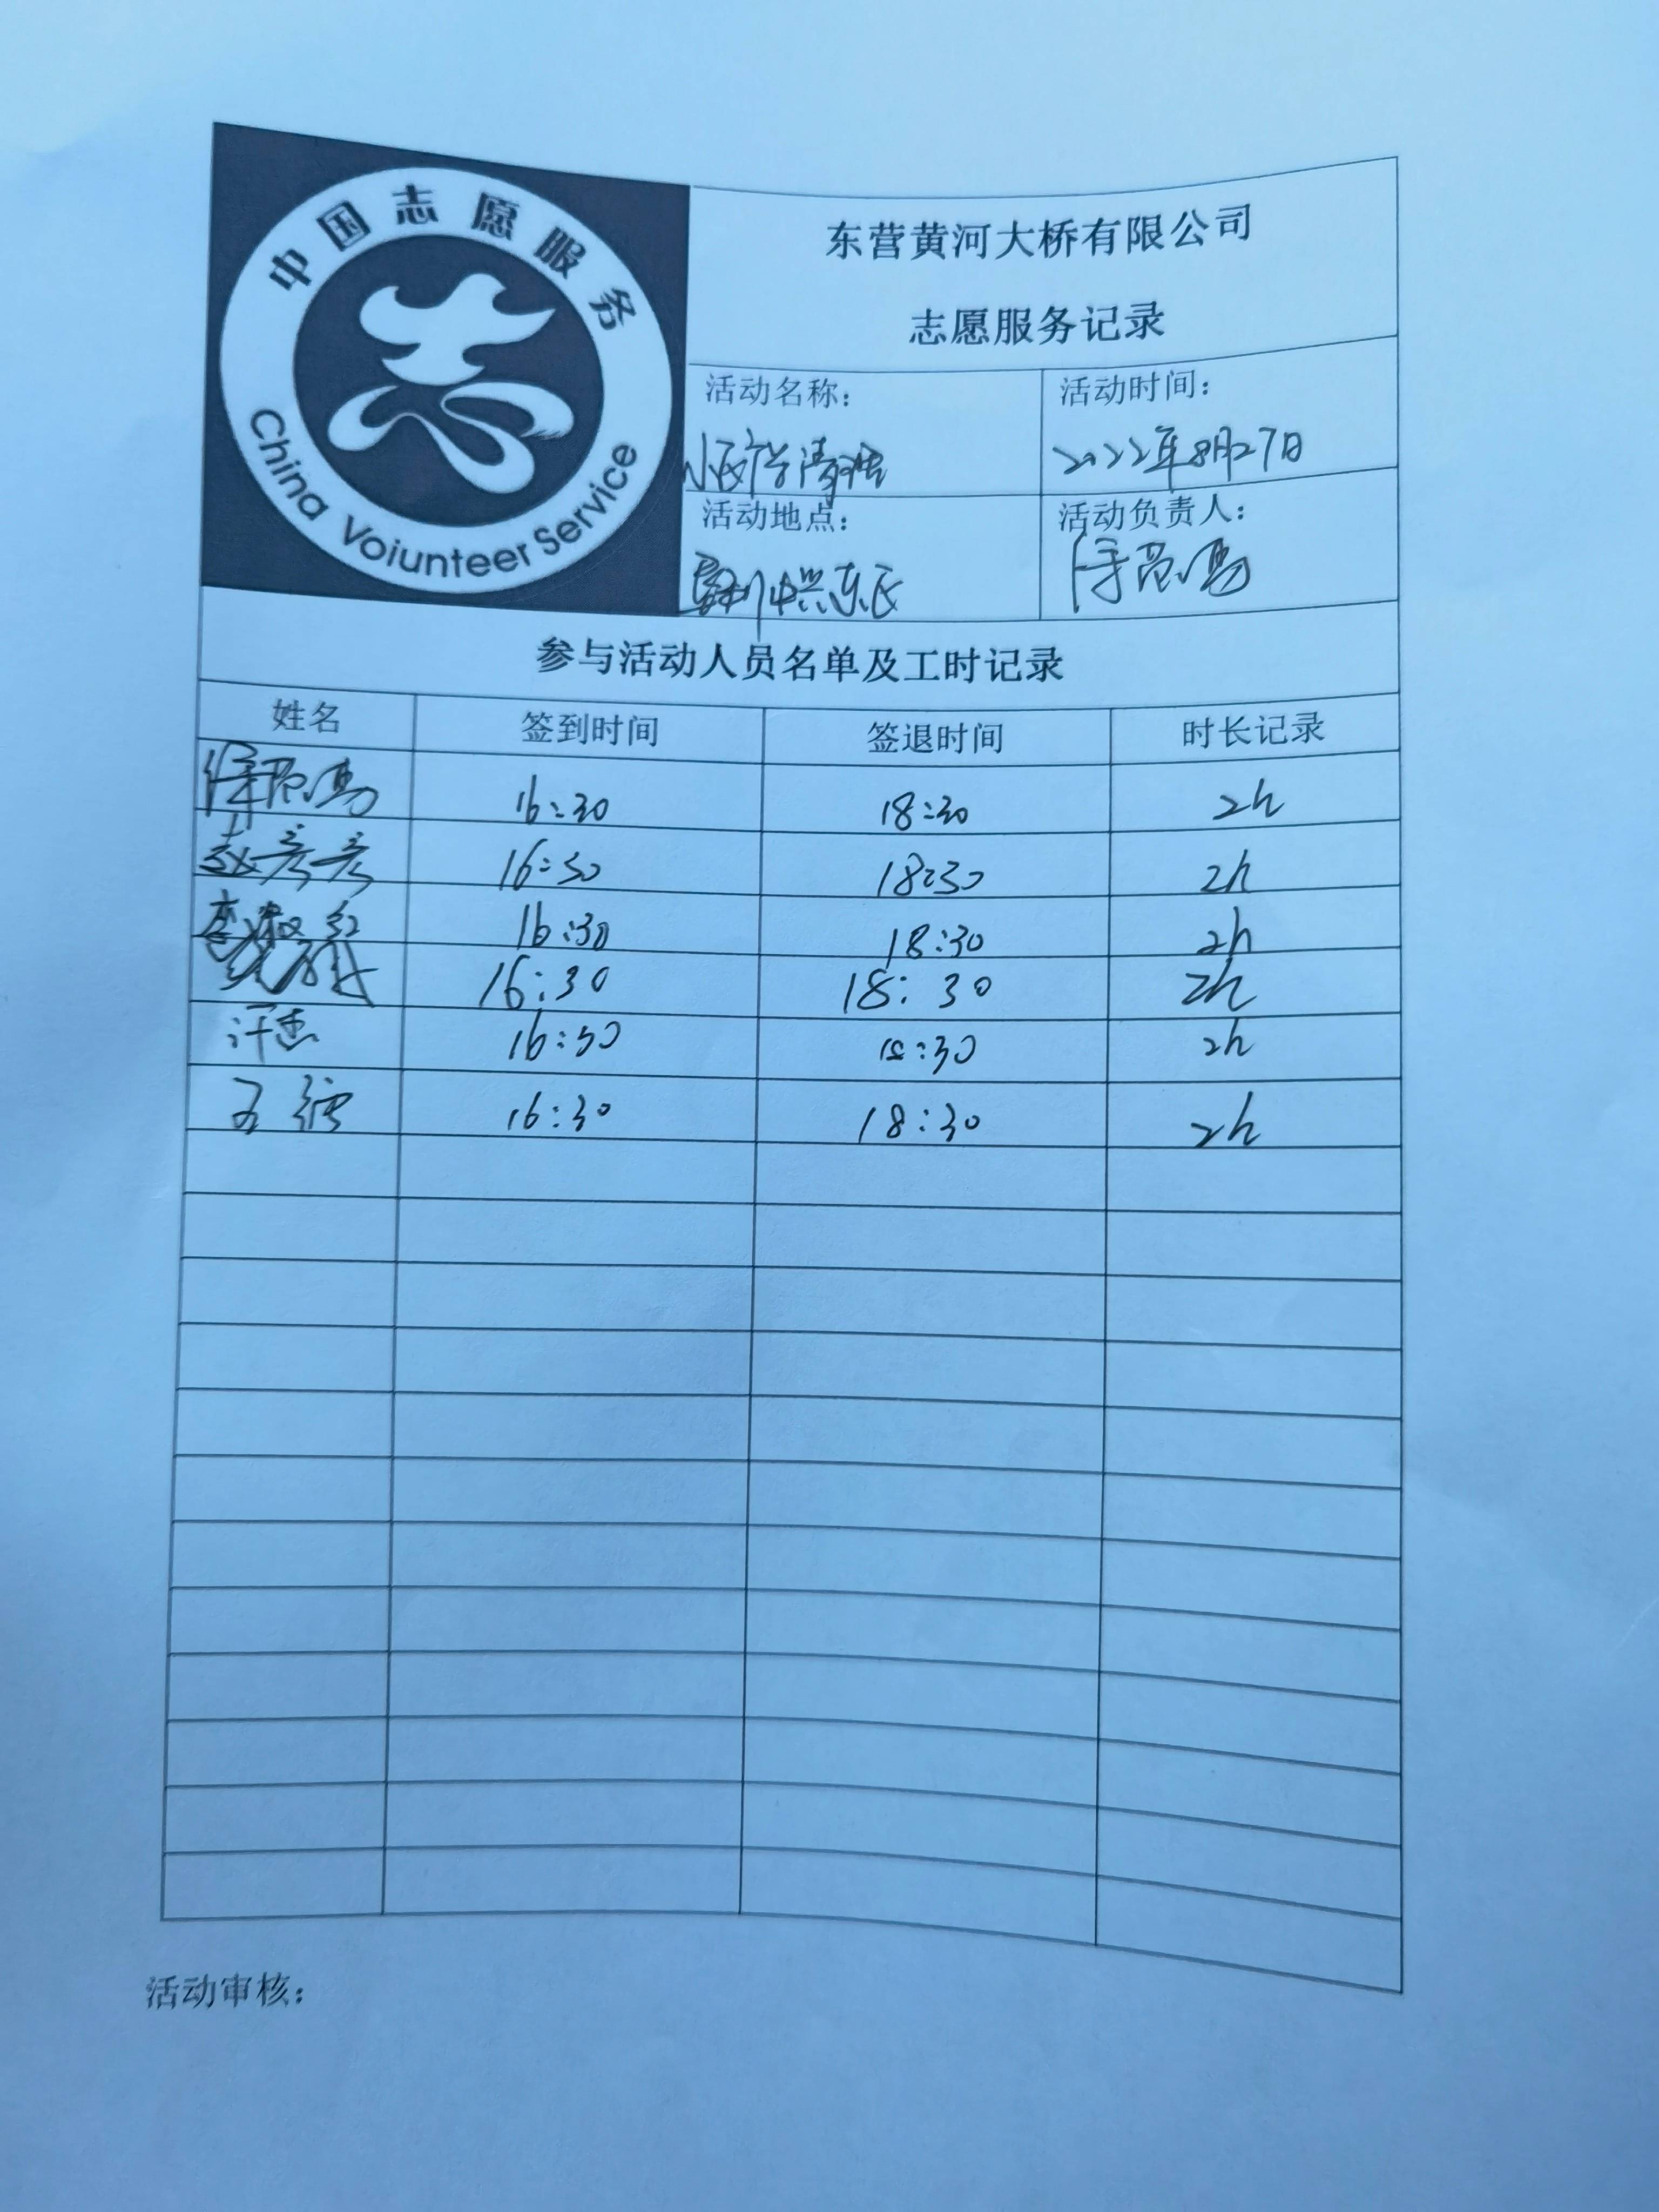 中国志愿服务
China Voiunteer Service
东营黄河大桥有限公司
志愿服务记录
活动名称：
活动时间：
清洁
2022年8月27日
活动地点：
活动负责人：
参与活动人员名单及工时记录
姓名 签到时间 签退时间 时长记录
16:30 18:30 2h
赵彦彦 16:30 18:30 2h
李淑红 16:30 18:30 2h
16:30 18:30 2h
16:30 18:30 2h
16:30 18:30 2h
活动审核：